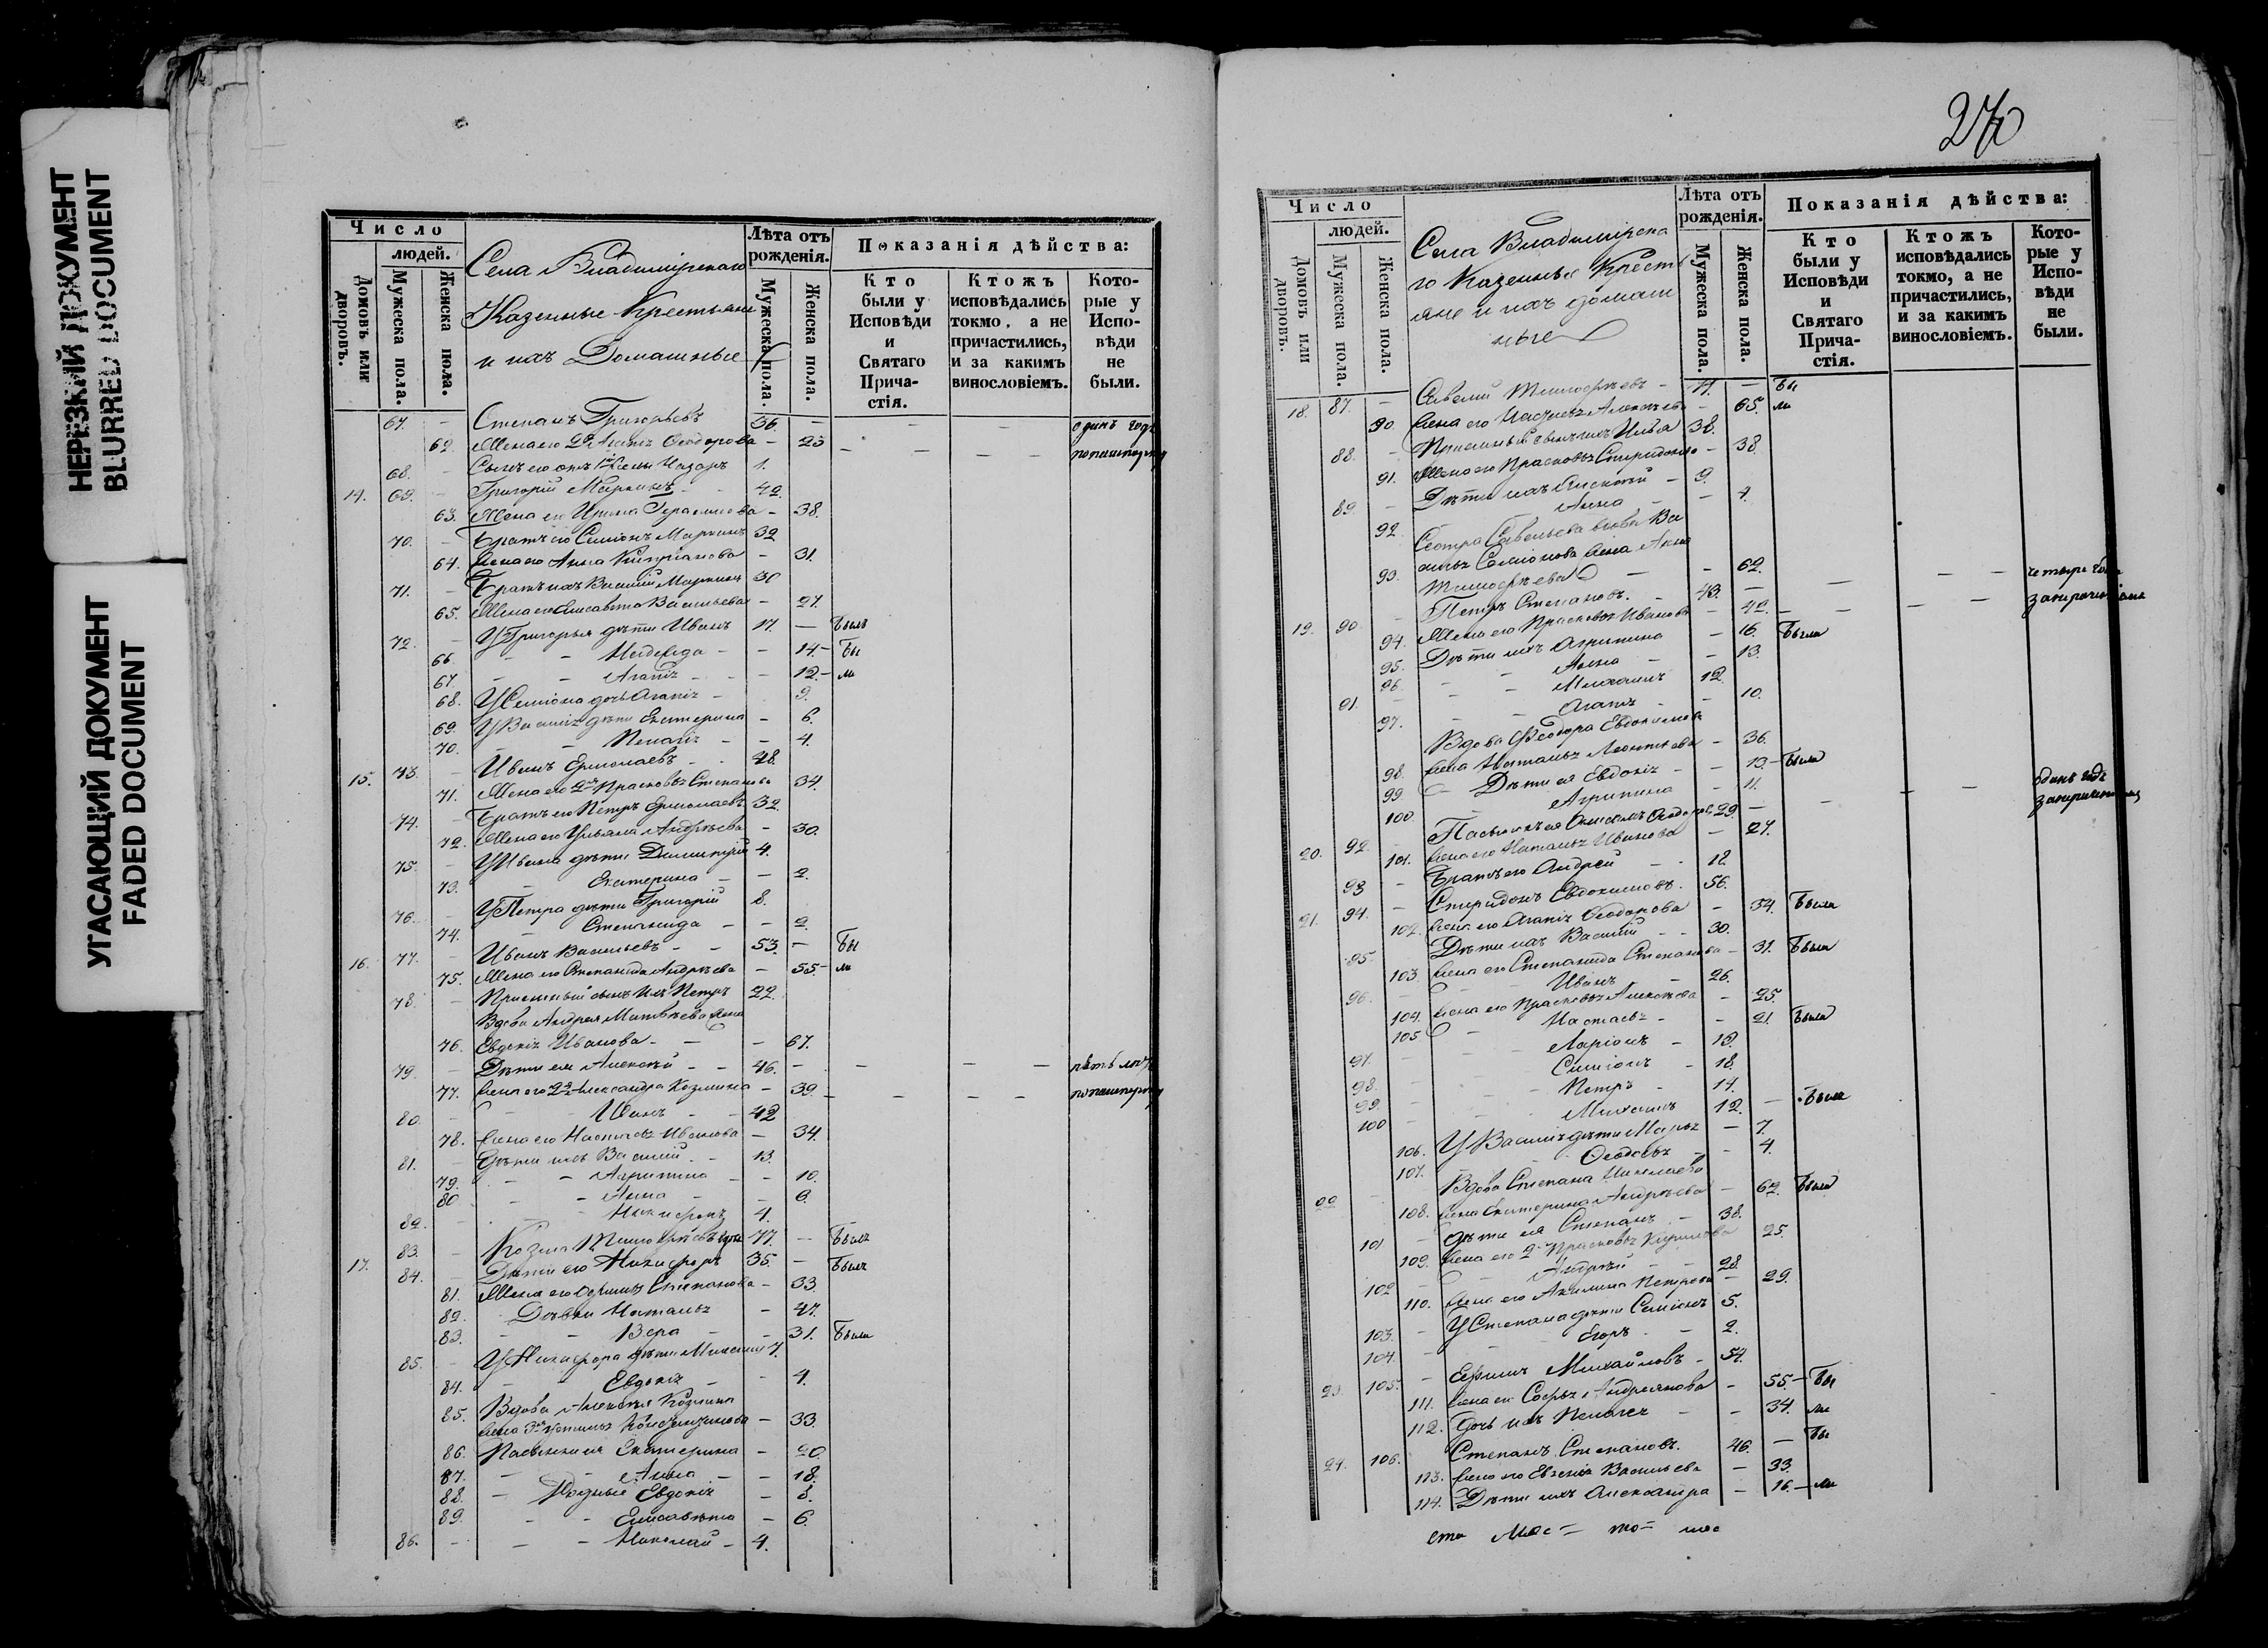 НЕРЕЗКИЙ ДОКУМЕНТ
BLURRED DOCUMENT
УГАСАЮЩИЙ ДОКУМЕНТ
FADED DOCUMENT
Число
людей.
Домовъ или дворовъ.
Мужеска пола.
Женска пола.
Села Владимірскаго
Казенные Крестьяне
и ихъ Домашные
Лѣта отъ рожденія.
Мужеска пола.
Женска пола.
Показанія дѣйства:
Кто были у Исповѣди и Святаго Причастія.
Ктожъ исповѣдались токмо, а не причастились, и за какимъ винословіемъ.
Которые у Исповѣди не были.
67. - Степанъ Григорьевъ 36. - - - одинъ годъ
62. Жена его 2я Агапія Ѳеодорова - 23 - - - попашпорту
68. - Сынъ его отъ 1й жены Назаръ 1.
14. 69. - Григорій Маркинъ - 42.
63. Жена его Ирина Герасимова - 38.
70. - Братъ его Семіонъ Маркинъ 32
64. Жена его Анна Кипріанова - 31.
71. - Братъ ихъ Василій Маркинъ 30
65. Жена его Елисавета Васильева - 27.
72. - У Григорья дѣти Иванъ 17. - Былъ
66. - - Надежда - - 14. - Бы
67. - - Агапія - - 12. - ли
68. У Семіона дочь Агапія - 9.
69. У Василія дѣти Екатерина - 6.
70. - Пелагія - - 4.
15. 73. - Иванъ Ермолаевъ - 48.
71. Жена его 2я Прасковья Степанова 34.
74. - Братъ его Петръ Ермолаевъ 32.
72. Жена его Ульяна Андрѣева - 30.
75. - У Ивана дѣти Димитрій 4.
73. - Екатерина - - 2.
76. - У Петра дѣти Григорій 8.
74. - Степанида - - 2.
16. 77. - Иванъ Васильевъ - - 53. - Бы
75. Жена его Степанида Андрѣева - 55. - ли
78. - Пріемный сынъ ихъ Петръ 22.
Вдова Андрея Матвѣева жена
76. Евдокія Иванова - - - 67.
79. - Дѣти ея Алексѣй - - 46. - - - - пять лѣтъ
77. Жена его 2я Александра Козмина - 39. - - - - попашпорту
80. - - Иванъ - - 42
78. Жена его Настасья Иванова - 34.
81. - Дѣти ихъ Василій - 13.
79. - - Агрипина - - 10.
80 - - Анна - - 6.
82. - - - Никифоръ 4.
17. 83. - Козма Тимофѣевъ 77. - Былъ
84. - Дѣти его Никифоръ 35. - Былъ
81. Жена его Степанова - 33.
82. Дѣвки Наталья - 47.
83. - - Вера - - 31. Была
85. - У Никифора дѣти 7.
84. - - Евдокія - - 4.
85. Вдова Алексѣя Козмина
жена 3я - 33.
86. Пасынки ея Екатерина - 20.
87. - - Анна - - 18.
88. - Родные Евдокія - 8.
89. - - Елисавета - 6.
86. - - - Николай - 4.
270
Число
людей.
Домовъ или дворовъ.
Мужеска пола.
Женска пола.
Села Владимірска
го Казенные Крестья
яне и ихъ домаш
ные
Лѣта отъ рожденія.
Мужеска пола.
Женска пола.
Показанія дѣйства:
Кто были у Исповѣди и Святаго Причастія.
Ктожъ исповѣдались токмо, а не причастились, и за какимъ винословіемъ.
Которые у Исповѣди не были.
18. 87. - Савелій Тимофѣевъ - 71. - Бы
90 Жена его Алексѣева - 65. ли
88. - Пріемный сынъ ихъ Илья 38.
91. Жена его Прасковья Спиридонова - 38
89. - Дѣти ихъ Алексѣй - 9.
92. Анна - - 4.
Сестра Савельева вдова Ва
силья Семіонова жена Анна
93. Тимофѣева - - 62.
19. 90. - Петръ Степановъ - 43. - - - - четыре года
94. Жена его Прасковья Иванова - 42. - - - -
95. Дѣти ихъ Агрипина - 16. Была
96. - Анна - - 13.
91. - - Михаилъ 12.
97. - - Агапія - - 10.
Вдова Ѳеодора Евдокимова
98. жена Наталья Леонтьева - 36.
99. Дѣти ея Евдокія - - 13 - Была
100. - Агрипина - 11.
20. 92. - Пасынокъ ея Ѳеодоровъ 29. - - - - одинъ годъ
101. Жена его Наталья Иванова - 27.
93 - Братъ его Андрей - - 12.
21. 94. - Спиридонъ Евдокимовъ. 56.
102. Жена его Агапія Ѳеодорова - 54. Была
95. - Дѣти ихъ Василій - - 30.
103. жена его Степанида Степанова - 31. Была
96. - - Иванъ - 26.
104. Жена его Прасковья Алексѣева - 25.
105 - Настасья - - 21. Была
97. - - - Ларіонъ - 19.
98. - - Семіонъ - 18.
99. - - Петръ - 14.
100 - - Михаилъ 12. - Была
106. У Василія дѣти Марья - 7.
107. - Ѳеодосья - - 4.
22. Вдова Степана Николаева
108. жена Екатерина Андрѣева - 62. Была
101 - Дѣти ея Степанъ - 38.
109. Жена его 2я Прасковья Кирилова 25.
102 - - Андрей - - 28.
110. Жена его Акилина Петрова - 29.
103. - У Степана дѣти Семіонъ 5.
104. - - Егоръ - - 2.
23. 105. - Ефимъ Михайловъ - 54.
111. Жена его Софья Андреянова - 55. - Бы
112. Дочь ихъ Пелагея - - 34. ли
24. 106. - Степанъ Степановъ. 46. - Бы
113. Жена его Евгенія Васильева - 33.
114. Дѣти ихъ Александра - 16. - ли